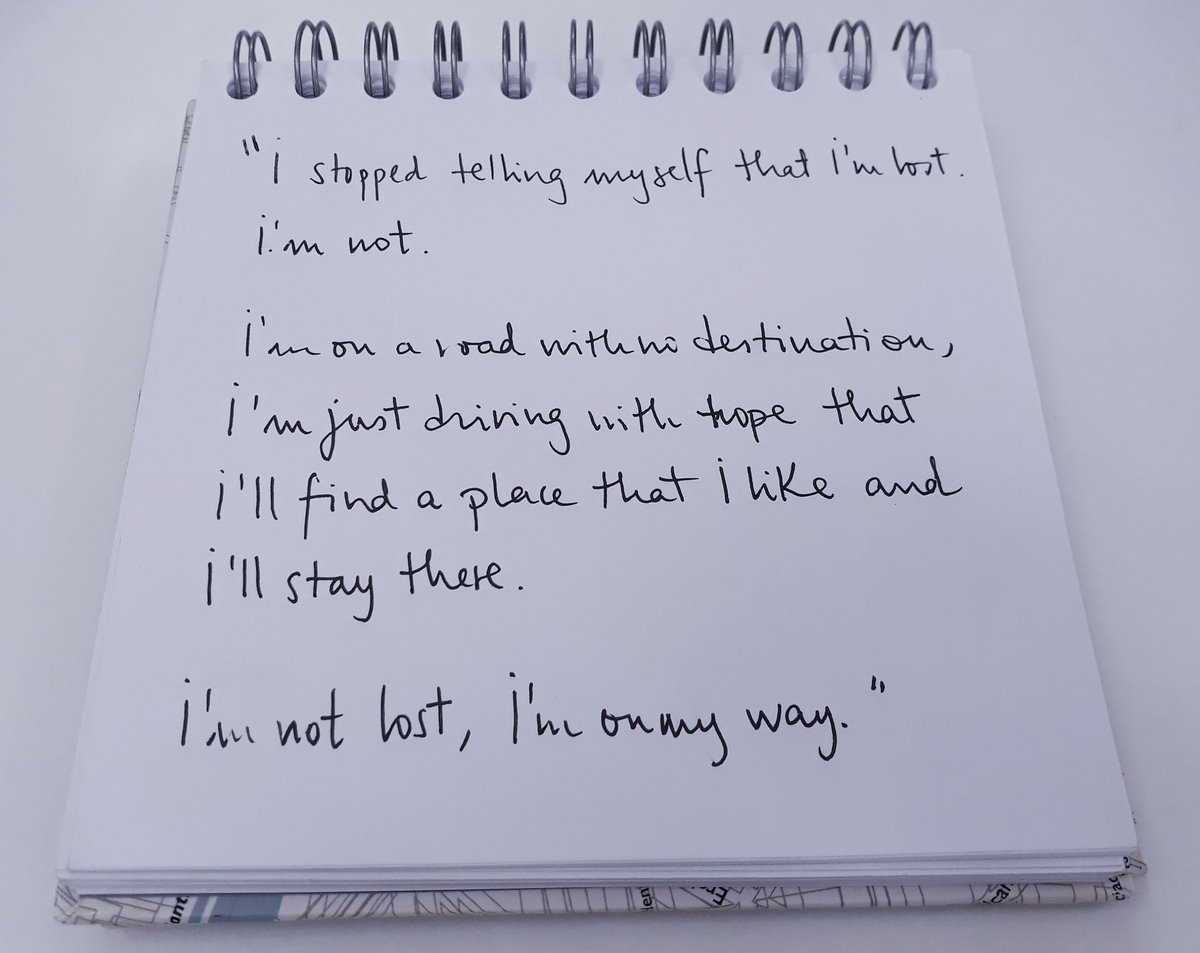 "i stopped telling myself that i'm lost.
i'm not.
i'm on a road with no destination,
i'm just driving with hope that
i'll find a place that i like and
i'll stay there.
i'm not lost, i'm on my way."
ant